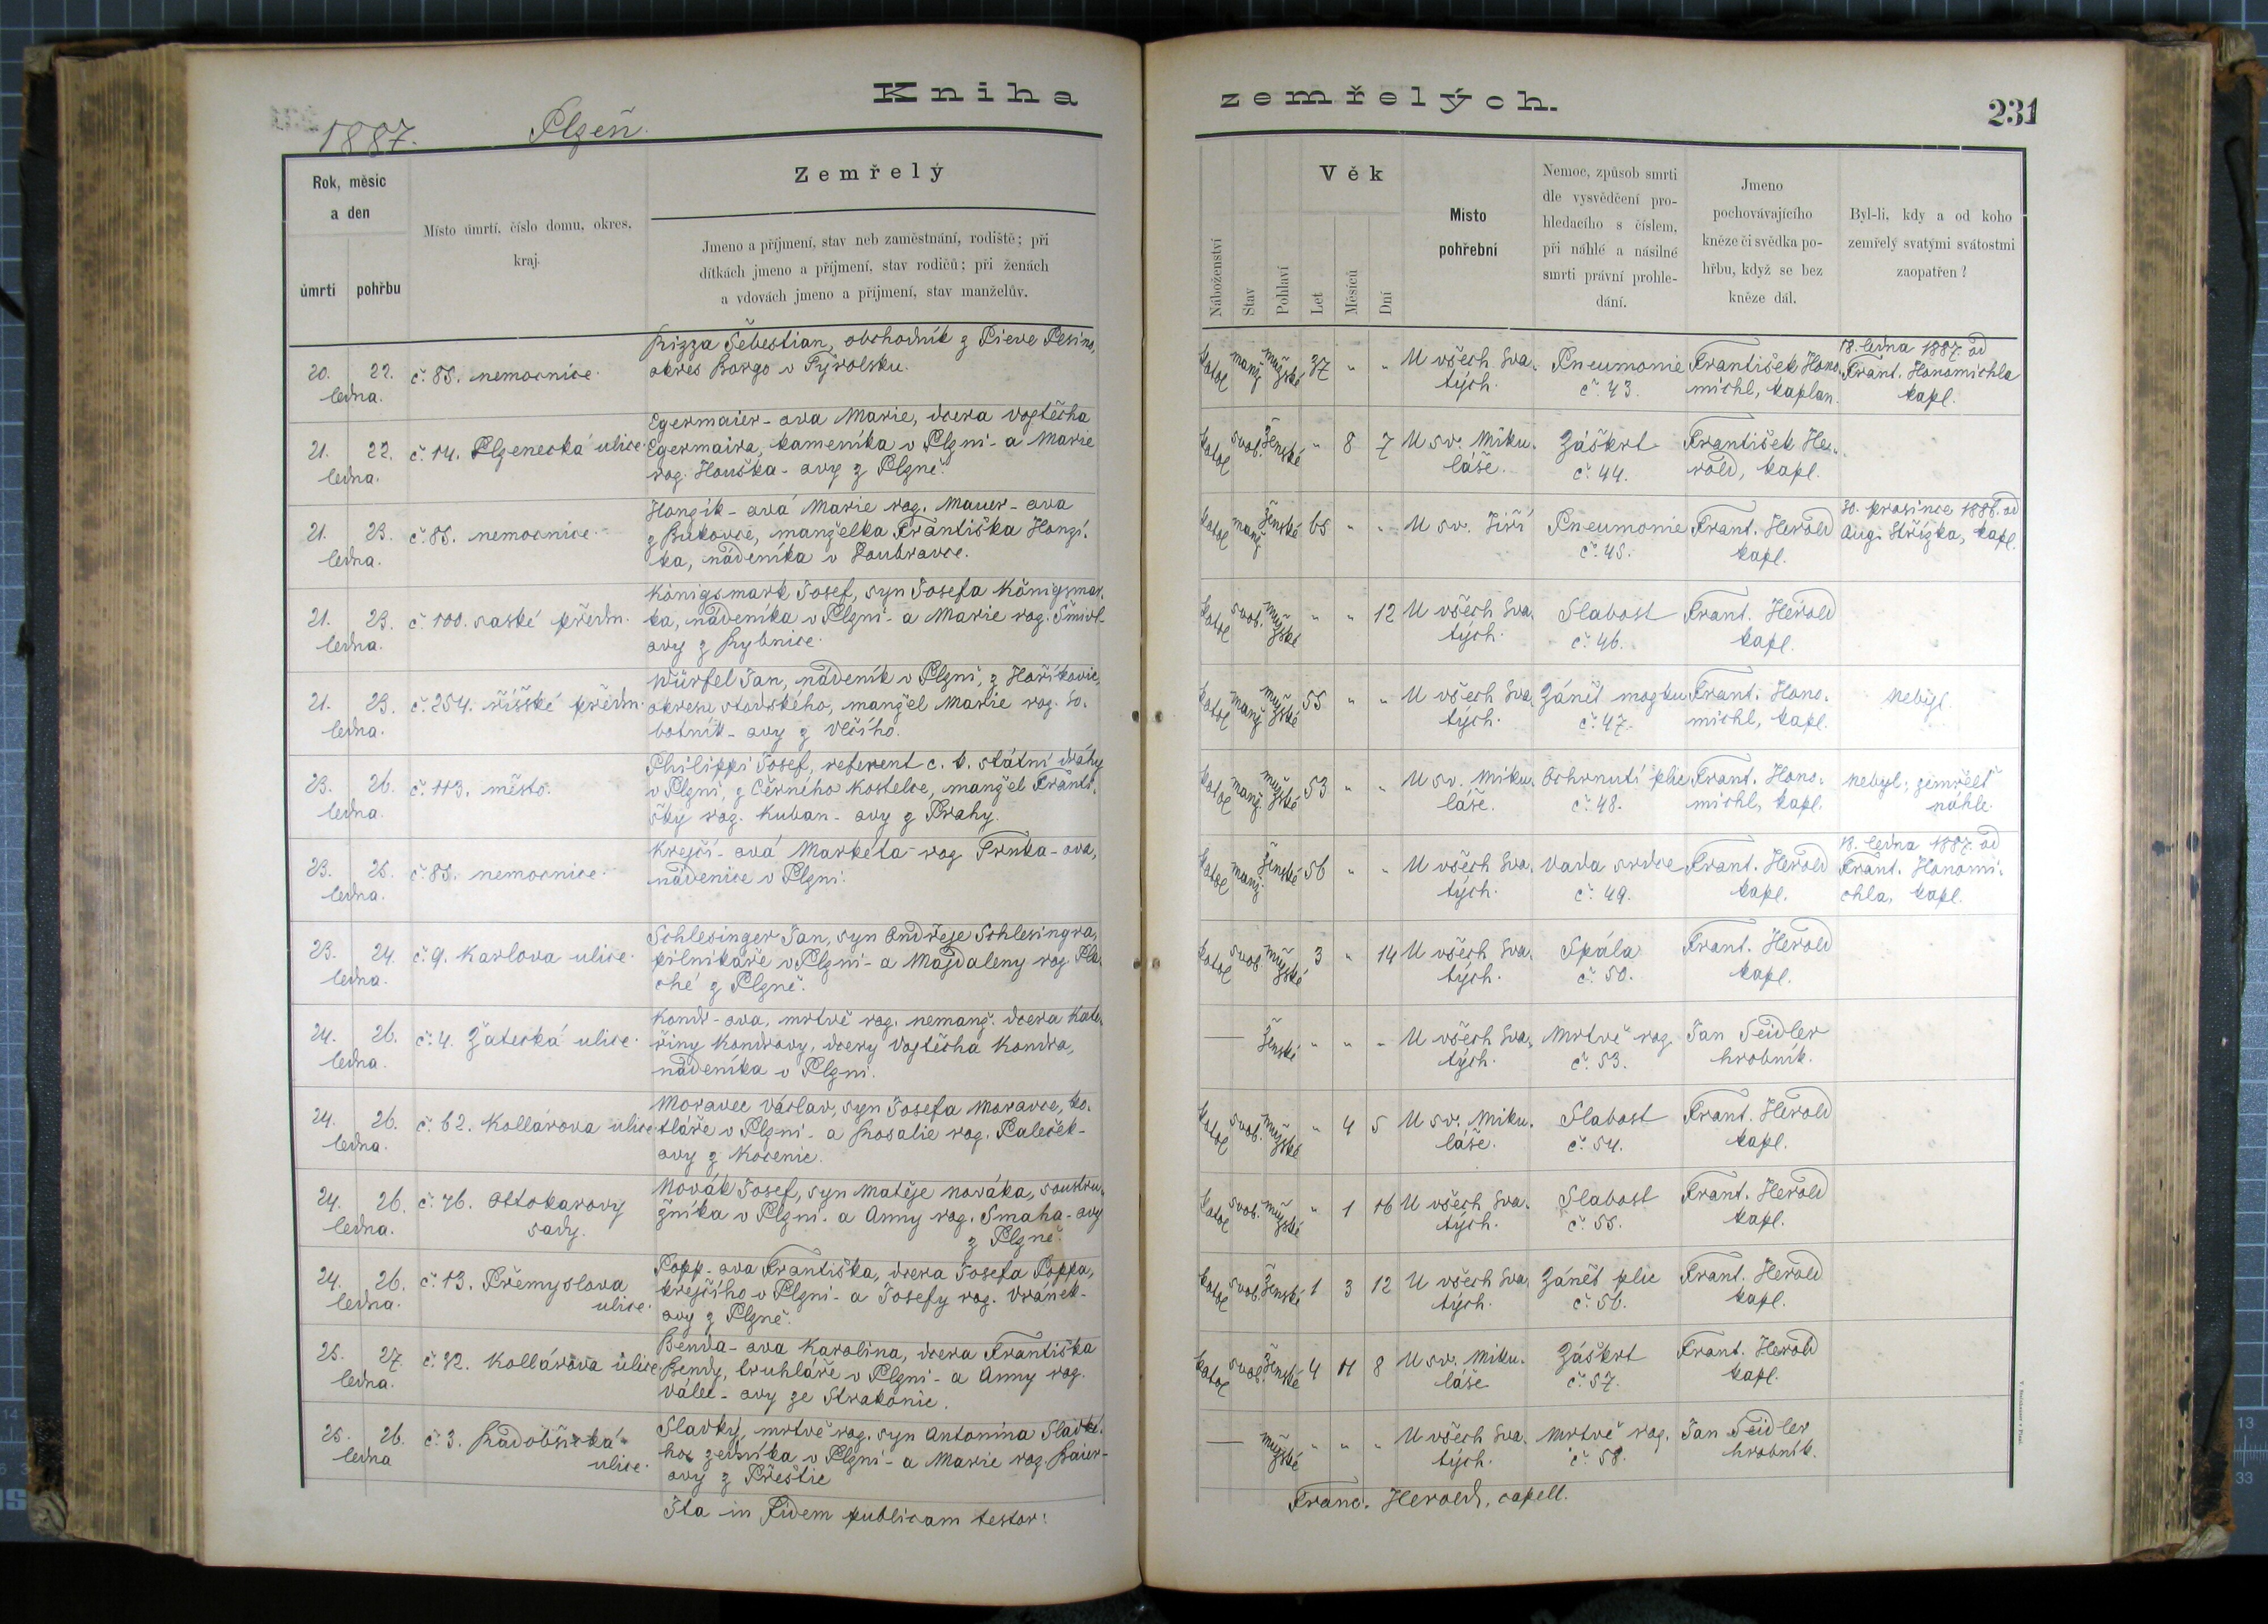 Kniha
zemřelých.
231
1887.
Plzeň.
Rok, měsíc
a den
úmrtí
pohřbu
Místo úmrtí, číslo domu, okres,
kraj.
Zemřelý
Jmeno a příjmení, stav neb zaměstnání, rodiště; při
dítkách jmeno a příjmení, stav rodičů; při ženách
a vdovách jmeno a příjmení, stav manželův.
Náboženství
Stav
Pohlaví
Věk
Let
Měsíců
Dní
Místo
pohřební
Nemoc, způsob smrti
dle vysvědčení pro-
hledacího s číslem,
při náhlé a násilné
smrti právní prohle-
dání.
Jmeno
pochovávajícího
kněze či svědka po-
hřbu, když se bez
kněze dál.
Byl-li, kdy a od koho
zemřelý svatými svátostmi
zaopatřen?
20. 22.
ledna.
č. 85. nemocnice.
Rizza Šebestian, obchodník z Pieve Tesino,
okres Borgo v Tyrolsku.
katol manž mužské 37 " "
U všech Sva-
tých.
Pneumonie
č. 43.
František Hono-
michl, kaplan.
18. ledna 1887 od
Frant. Honomichla
kapl.
21. 22.
ledna.
č. 14. Plzenecká ulice.
Egermaier-ova Marie, dcera Vojtěcha
Egermaira, kameníka v Plzni - a Marie
roz. Houška-ovy z Plzně.
katol svob. ženské " 8 7
U sv. Miku-
láše.
Záškrt
č. 44.
František He-
rold, kapl.
21. 23.
ledna.
č. 85. nemocnice.
Honzík-ová Marie roz. Mauer-ova
z Bukovce, manželka Františka Honzí-
ka, nádeníka v Doubravce.
katol manž ženské 65 " "
U sv. Jiří
Pneumonie
č. 45.
Frant. Herold
kapl.
30. prosince 1886. od
Aug. Střízka, kapl.
21. 23.
ledna.
č. 100. saské předm.
Königsmark Josef, syn Josefa Königsmar-
ka, nádeníka v Plzni - a Marie roz. Šmidl-
ovy z Rybnice.
katol svob. mužské " " 12
U všech Sva-
tých.
Slabost
č. 46.
Frant. Herold
kapl.
21. 23.
ledna.
č. 254. říšské předm.
Würfel Jan, nádeník v Plzni, z Honíkovic,
okresu stodského, manžel Marie roz. So-
botník-ovy z Vlčího.
katol manž mužské 55 " "
U všech Sva-
tých.
Zánět mozku
č. 47.
Frant. Hono-
michl, kapl.
Nebyl.
23. 26.
ledna.
č. 113. město.
Philippi Josef, referent c. k. státní dráhy
v Plzni, z Černého Kostelce, manžel Franti-
šky roz. Kuban-ovy z Prahy.
katol manž mužské 53 " "
U sv. Miku-
láše.
Ochrnutí plic
č. 48.
Frant. Hono-
michl, kapl.
Nebyl; zemřel
náhle.
23. 25.
ledna.
č. 85. nemocnice.
Krejčí-ová Markéta roz Trnka-ova,
nádenice v Plzni.
katol manž. ženské 56 " "
U všech Sva-
tých.
Vada srdce
č. 49.
Frant. Herold
kapl.
18. ledna 1887. od
Frant. Honomi-
chla, kapl.
23. 24.
ledna.
č. 9. Karlova ulice.
Schlesinger Jan, syn Ondřeje Schlesingra,
pilníkáře v Plzni - a Majdaleny roz. Pla-
ché z Plzně.
katol svob. mužské 3 " 14
U všech Sva-
tých.
Spála
č. 50.
Frant. Herold
kapl.
24. 26.
ledna.
č. 4. Žatecká ulice.
Kondr-ova, mrtvě roz. nemanž. dcera Kate-
řiny Kondrovy, dcery Vojtěcha Kondra,
nádeníka v Plzni.
— ženské " " "
U všech Sva-
tých.
Mrtvě roz
č. 53.
Jan Seidler
hrobník.
24. 26.
ledna.
č. 62. Kollárova ulice.
Moravec Václav, syn Josefa Moravce, ko-
tláře v Plzni - a Rosalie roz. Paleček-
ovy z Kocenic.
katol svob. mužské " 4 5
U sv. Miku-
láše.
Slabost
č. 54.
Frant. Herold
kapl.
24. 26.
ledna.
č. 76. Ottokarovy
sady.
Novák Josef, syn Matěje Nováka, soustru-
žníka v Plzni - a Anny roz. Smaha-ovy
z Plzně.
katol svob. mužské " 1 16
U všech Sva-
tých.
Slabost
č. 55.
Frant. Herold
kapl.
24. 26.
ledna.
č. 13. Přemyslova
ulice.
Popp-ova Františka, dcera Josefa Poppa,
krejčího v Plzni - a Josefy roz. Vránek-
ovy z Plzně.
katol svob. ženské 1 3 12
U všech Sva-
tých.
Zánět plic
č. 56.
Frant. Herold
kapl.
25. 27.
ledna.
č. 32. Kollárova ulice.
Benda-ova Karolina, dcera Františka
Bendy, truhláře v Plzni - a Anny roz.
Válec-ovy ze Strakonic.
katol svob. ženské 4 11 8
U sv. Miku-
láše
Záškrt
č. 57.
Frant. Herold
kapl.
25. 26.
ledna
č. 3. Radobčická
ulice.
Sladký, mrtvě roz. syn Antonína Sladké-
ho, zedníka v Plzni - a Marie roz. Baier-
ovy z Přeštic
— mužské " " "
U všech Sva-
tých.
Mrtvě roz.
č. 58.
Jan Seidler
hrobník.
Ita in Fidem publicam testor:
Franc. Herold, capell.